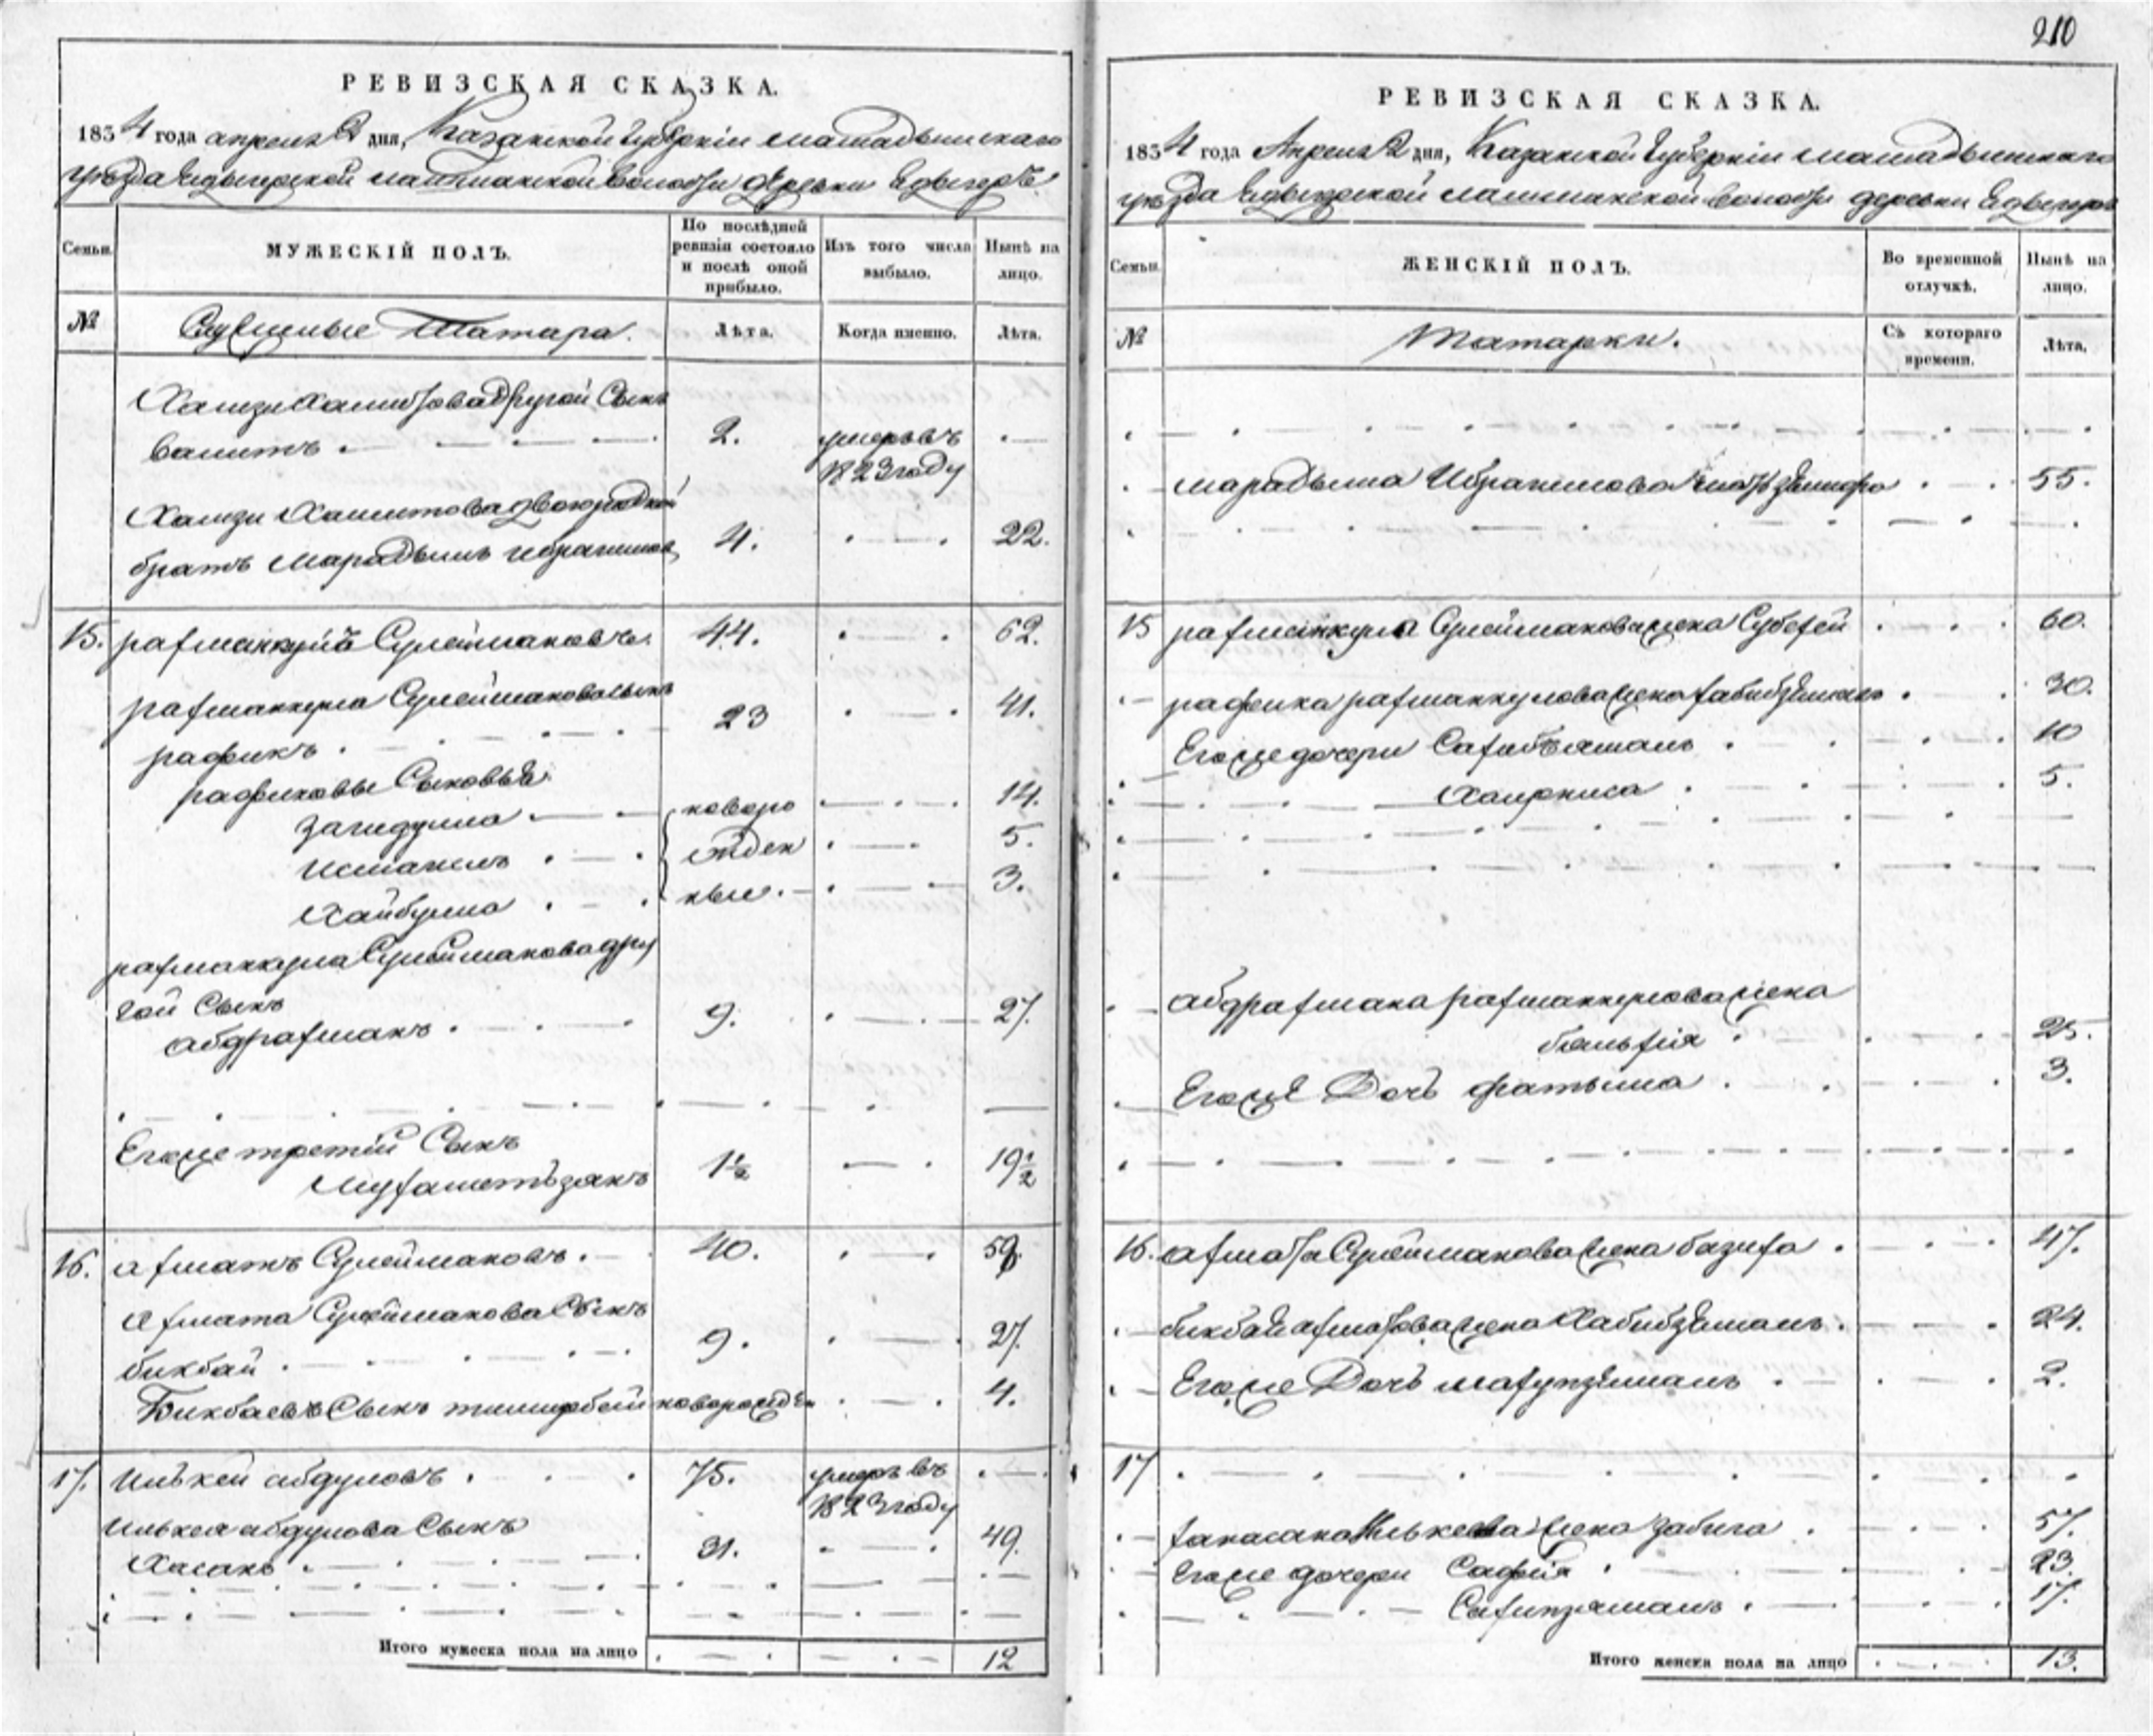 210
РЕВИЗСКАЯ СКАЗКА.
1834 года апреля 2 дня, Казанской Губернiи мамадышскаго
уѣзда Едыгерской лашманской волости деревни Едыгеръ
Семьи.
МУЖЕСКIЙ ПОЛЪ.
По послѣдней ревизiи состояло и послѣ оной прибыло.
Изъ того числа выбыло.
Нынѣ на лицо.
№
Служилые Татара.
Лѣта.
Когда именно.
Лѣта.
Хамзи Хамитова другой Сынъ
Валитъ 2. умеръ въ 1823 году
Хамзи Хамитова двоюродной
братъ Марадымъ Ибрагимовъ 4. 22.
15. рахманкулъ Сулеймановъ 44. 62.
рахманкула Сулейманова сынъ
рафикъ 23 41.
рафиковы Сыновья
Загидулла новоро 14.
Исмаилъ жден 5.
Хайбулла ные. 3.
рахманкула Сулейманова дру
гой Сынъ
абдрахманъ 9. 27.
Егоже третiй Сынъ
Мухаметьзянъ 1½ 19½
16. ахматъ Сулеймановъ. 40. 58.
Ахмата Сулейманова Сынъ
бикбай 9. 27.
Бикбаевъ Сынъ тимирбай новорожден 4.
17. Илькей абдуловъ 75. умеръ въ 1823 году
Илькея абдулова Сынъ
Хасанъ 31. 49.
Итого мужеска пола на лицо 12
РЕВИЗСКАЯ СКАЗКА.
1834 года Апреля 2 дня, Казанской Губернiи мамадышскаго
уѣзда Едыгерской лашманской волости деревни Едыгеръ
Семьи.
ЖЕНСКIЙ ПОЛЪ.
Во временной отлучкѣ.
Нынѣ на лицо.
№
Татарки.
Съ котораго времени.
Лѣта.
марадыма Ибрагимова мать 55.
15 рахманкула Сулейманова жена Субехей 60.
рафика рахманкулова жена хабибземалъ 30.
Егоже дочери Сахибъямалъ 10
Хаирниса 5.
абдрахмана рахманкулова жена
бальхiя 25.
Егоже Дочь фатыма 3.
16. ахмата Сулейманова жена базиха 47.
бикбая ахматова жена Хабибземалъ 24.
Егоже Дочь махупземалъ 2.
17
хасана Илькеева жена Забига 57.
Егоже дочери Сафiя 23.
Сахипзямалъ 17.
Итого женска пола на лицо 13.